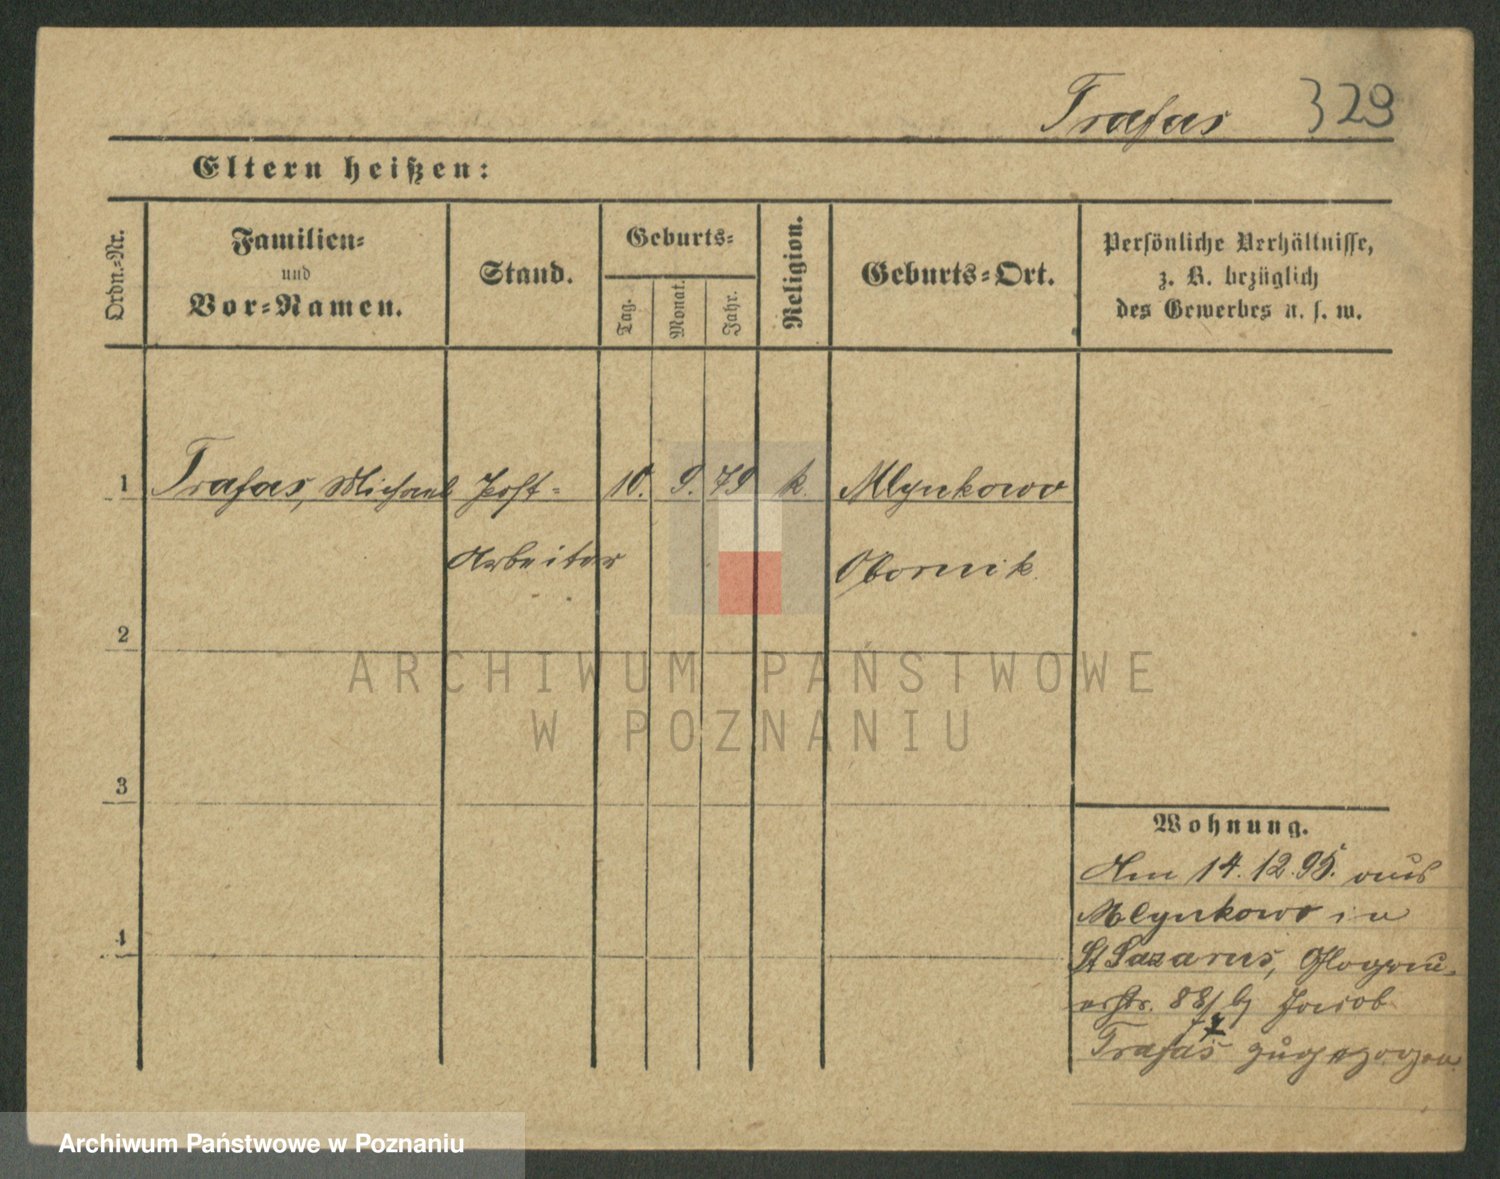 Trafas 329
Eltern heißen:
Ordn.-Nr.
Familien-
und
Vor-Namen.
Stand.
Geburts-
Tag.
Monat.
Jahr.
Religion.
Geburts-Ort.
Persönliche Verhältnisse,
z. B. bezüglich
des Gewerbes u. s. w.
1 Trafas, Michael Post- 10. 9. 79 k. Mlynkowo
Arbeiter Obornik
2
ARCHIWUM PAŃSTWOWE
W POZNANIU
3
Wohnung.
Am 14.12.95. aus
Mlynkowo in
St Lazarus, Glogau-
erstr. 88/ bei Jacob
Trafas zugezogen
4
Archiwum Państwowe w Poznaniu